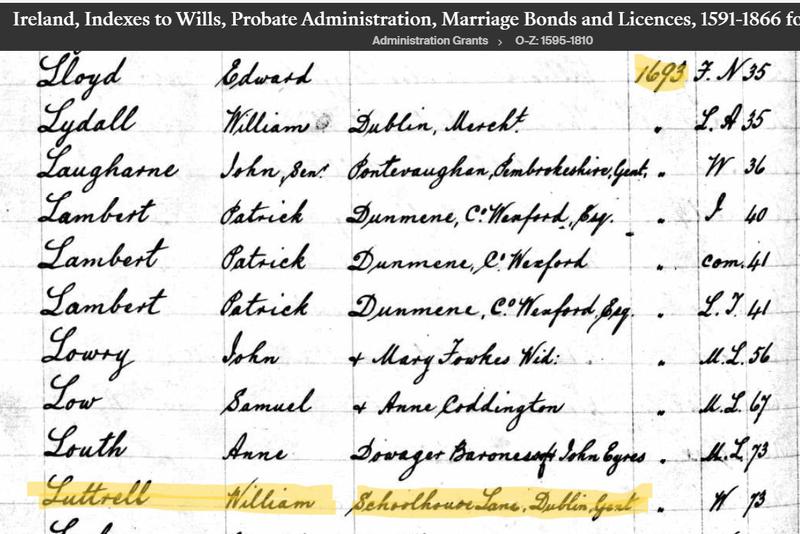 Ireland, Indexes to Wills, Probate Administration, Marriage Bonds and Licences, 1591-1866 fo
Administration Grants > O-Z: 1595-1810
Lloyd Edward 1693 F. N 35
Lydall William Dublin, Mercht. " L. A 35
Laugharne John, Senr. Pontevaughan, Pembrokeshire, Gent. " W 36
Lambert Patrick Dunmene, Co. Wexford, Esq. " I 40
Lambert Patrick Dunmene, Co. Wexford " com. 41
Lambert Patrick Dunmene, Co. Wexford, Esq. " L. T. 41
Lowry John + Mary Fowkes Wid: " M.L. 56
Low Samuel + Anne Coddington " M.L. 67
Louth Anne Dowager Baroness of + John Eyres " M.L. 73
Luttrell William Schoolhouse Lane, Dublin, Gent " W 73